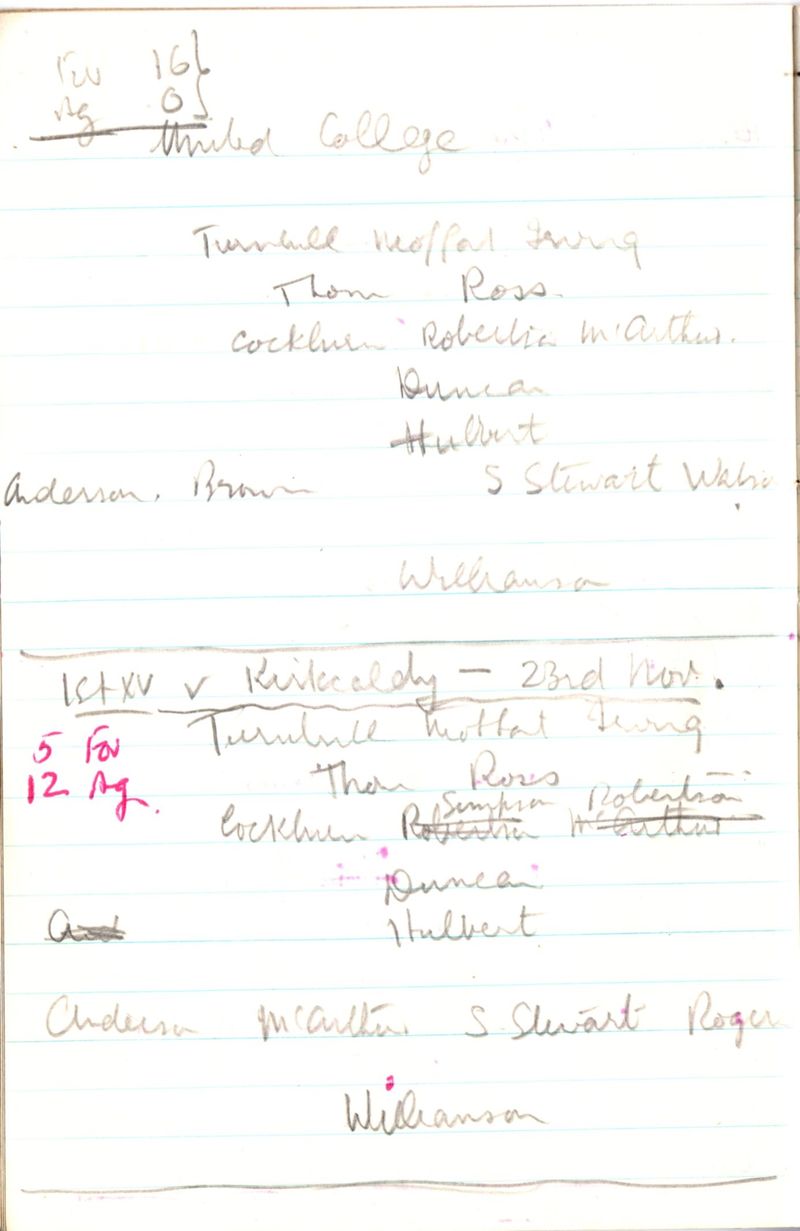 For 16}
Ag 0}
United College
Turnbull Moffat Irving
Thom Ross
Cockburn Robertson McArthur.
Duncan
Hulbert
Anderson. Brown S Stewart Watson
Williamson
1st XV v Kirkcaldy – 23rd Nov.
5 For Turnbull Moffat Irving
12 Ag. Thom Ross
Simpson Robertson
Cockburn Robertson McArthur
Duncan
And Hulbert
Anderson McArthur S. Stewart Roger
Williamson